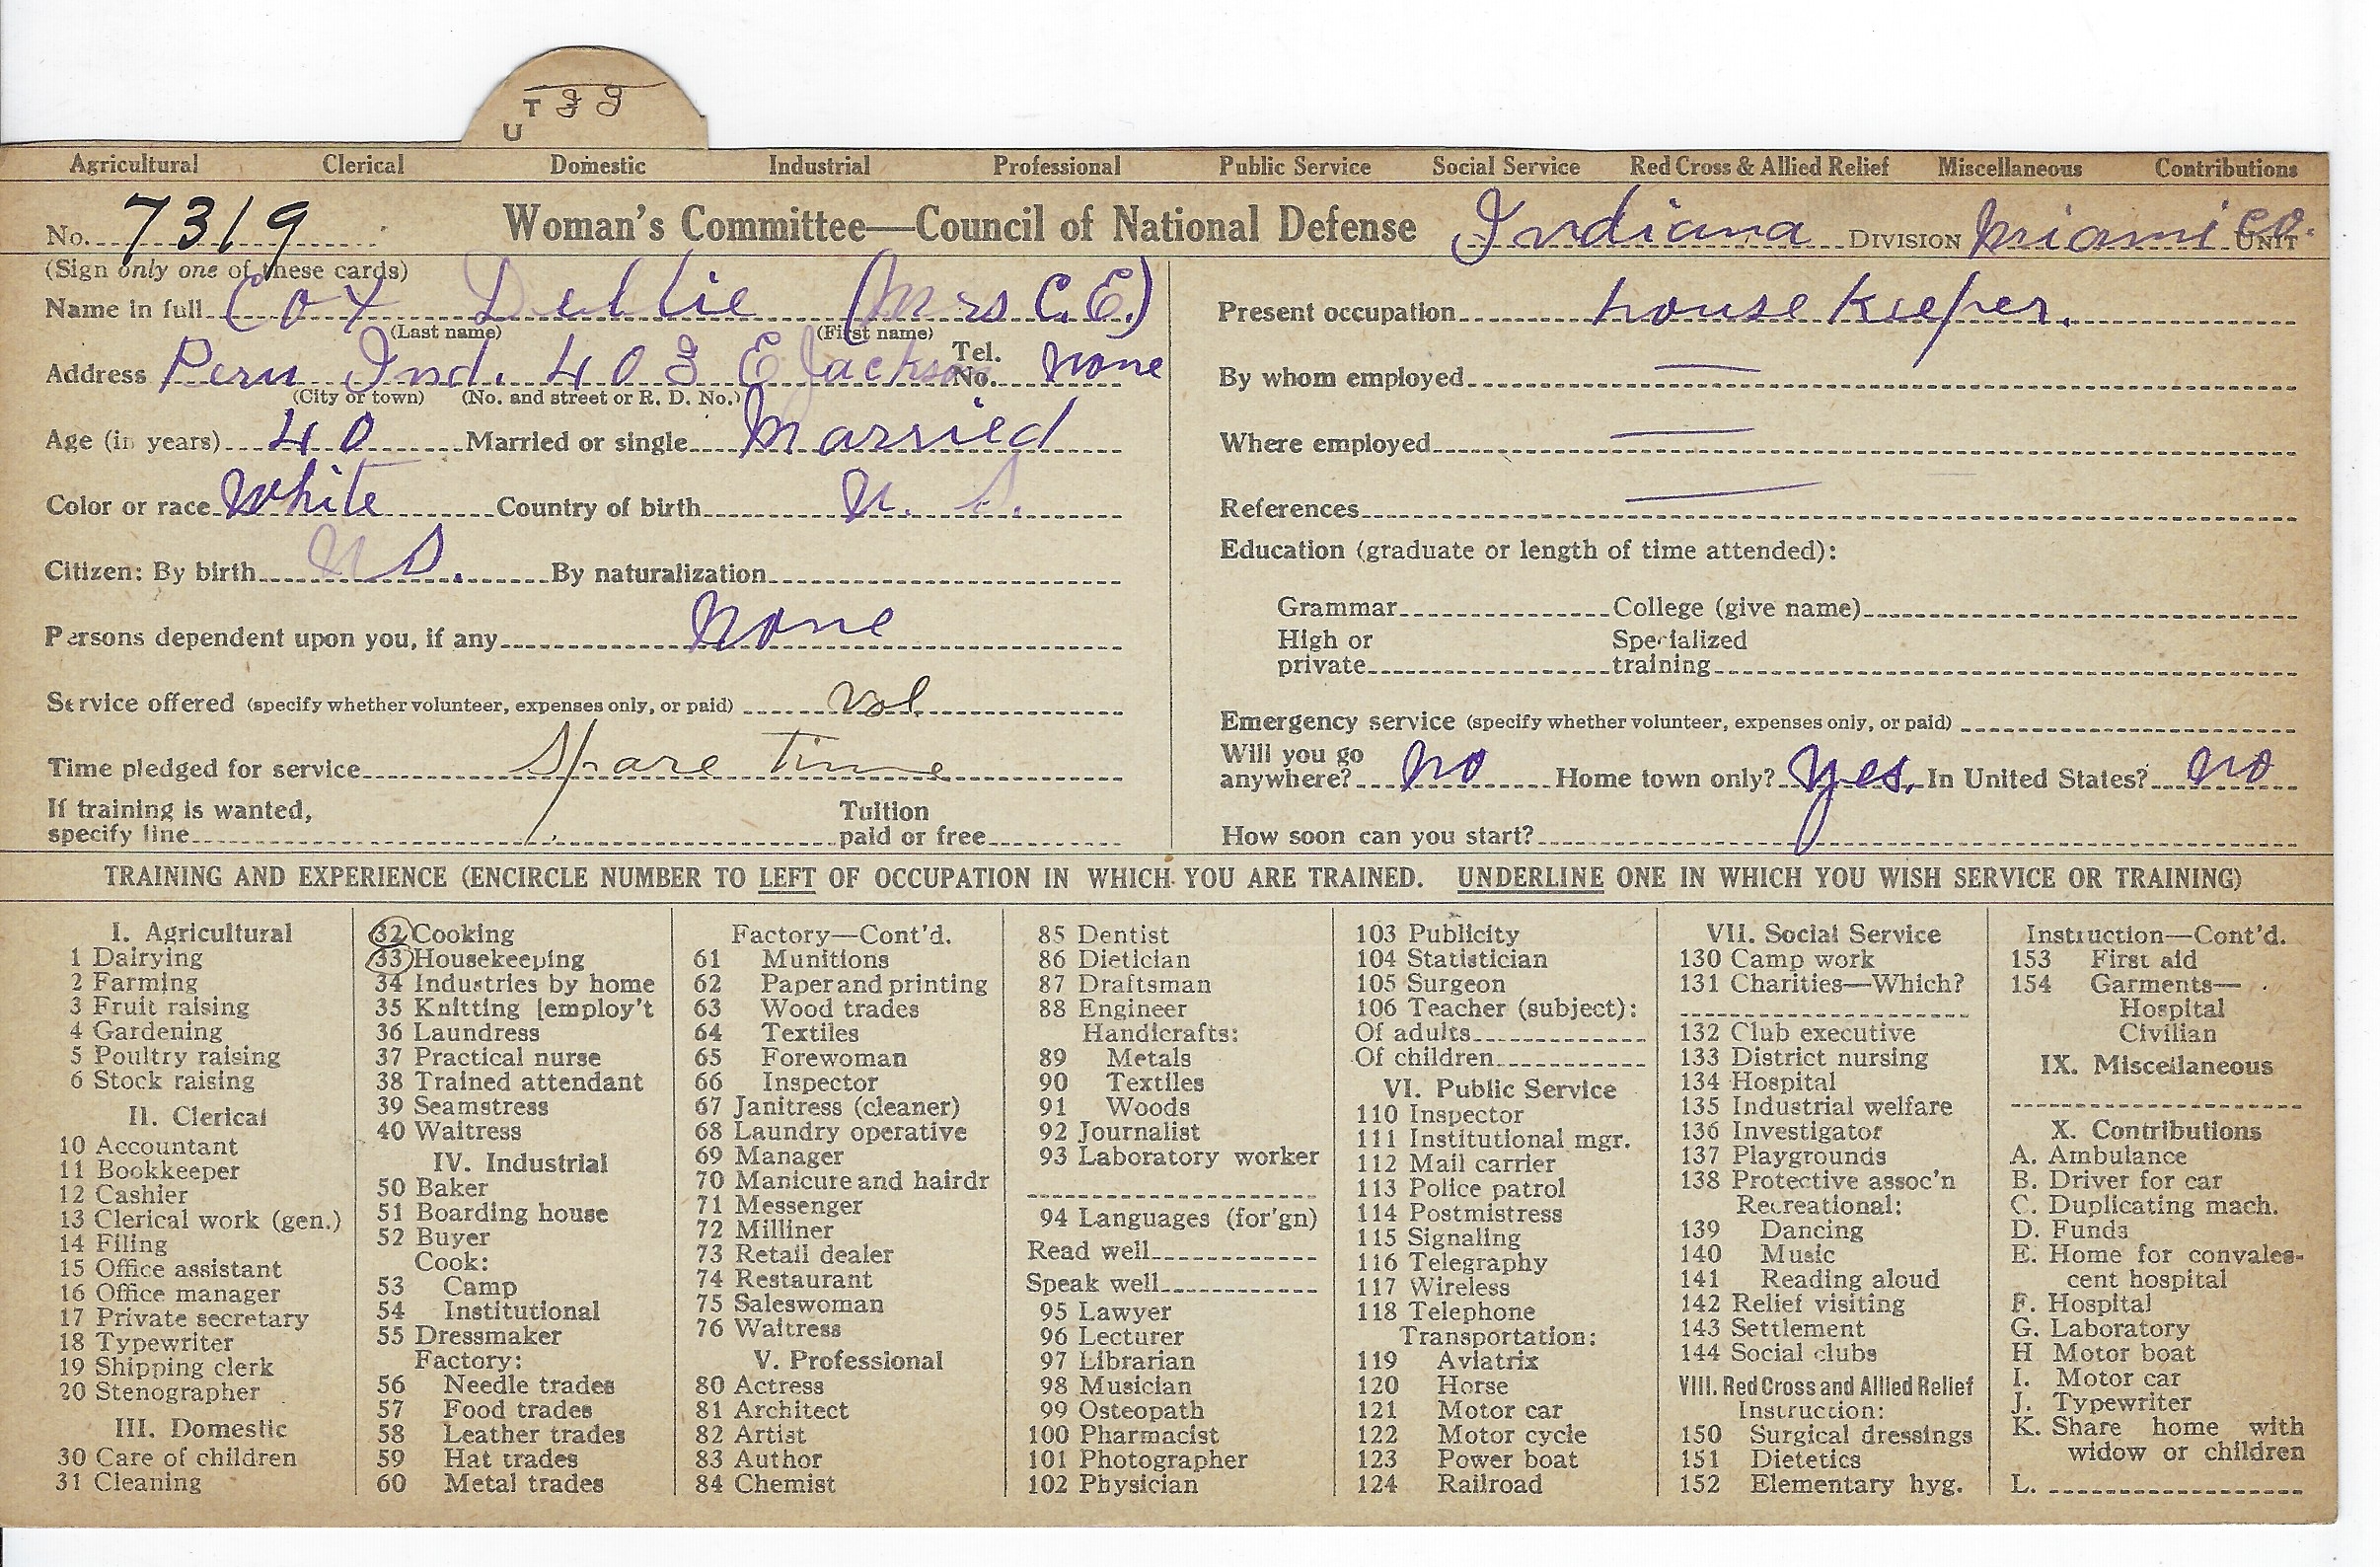 T 33
U
Agricultural Clerical Domestic Industrial Professional Public Service Social Service Red Cross & Allied Relief Miscellaneous Contributions
No. 7319 Woman's Committee—Council of National Defense Indiana DIVISION Miami Co. UNIT
(Sign only one of these cards)
Name in full Cox Dellie (Mrs C.E.)
(Last name) (First name)
Address Peru Ind. 403 E Jackson Tel. No. none
(City or town) (No. and street or R. D. No.)
Age (in years) 40 Married or single Married
Color or race White Country of birth U. S.
Citizen: By birth U S. By naturalization
Persons dependent upon you, if any None
Service offered (specify whether volunteer, expenses only, or paid) Vol.
Time pledged for service Spare Time
If training is wanted, specify line Tuition paid or free
Present occupation house keeper.
By whom employed —
Where employed —
References —
Education (graduate or length of time attended):
Grammar College (give name)
High or private Specialized training
Emergency service (specify whether volunteer, expenses only, or paid)
Will you go anywhere? no Home town only? yes. In United States? no
How soon can you start?
TRAINING AND EXPERIENCE (ENCIRCLE NUMBER TO LEFT OF OCCUPATION IN WHICH YOU ARE TRAINED. UNDERLINE ONE IN WHICH YOU WISH SERVICE OR TRAINING)
I. Agricultural
1 Dairying
2 Farming
3 Fruit raising
4 Gardening
5 Poultry raising
6 Stock raising
II. Clerical
10 Accountant
11 Bookkeeper
12 Cashier
13 Clerical work (gen.)
14 Filing
15 Office assistant
16 Office manager
17 Private secretary
18 Typewriter
19 Shipping clerk
20 Stenographer
III. Domestic
30 Care of children
31 Cleaning
32 Cooking
33 Housekeeping
34 Industries by home
35 Knitting [employ't
36 Laundress
37 Practical nurse
38 Trained attendant
39 Seamstress
40 Waitress
IV. Industrial
50 Baker
51 Boarding house
52 Buyer
Cook:
53 Camp
54 Institutional
55 Dressmaker
Factory:
56 Needle trades
57 Food trades
58 Leather trades
59 Hat trades
60 Metal trades
Factory—Cont'd.
61 Munitions
62 Paper and printing
63 Wood trades
64 Textiles
65 Forewoman
66 Inspector
67 Janitress (cleaner)
68 Laundry operative
69 Manager
70 Manicure and hairdr
71 Messenger
72 Milliner
73 Retail dealer
74 Restaurant
75 Saleswoman
76 Waitress
V. Professional
80 Actress
81 Architect
82 Artist
83 Author
84 Chemist
85 Dentist
86 Dietician
87 Draftsman
88 Engineer
Handicrafts:
89 Metals
90 Textiles
91 Woods
92 Journalist
93 Laboratory worker
94 Languages (for'gn)
Read well
Speak well
95 Lawyer
96 Lecturer
97 Librarian
98 Musician
99 Osteopath
100 Pharmacist
101 Photographer
102 Physician
103 Publicity
104 Statistician
105 Surgeon
106 Teacher (subject):
Of adults
Of children
VI. Public Service
110 Inspector
111 Institutional mgr.
112 Mail carrier
113 Police patrol
114 Postmistress
115 Signaling
116 Telegraphy
117 Wireless
118 Telephone
Transportation:
119 Aviatrix
120 Horse
121 Motor car
122 Motor cycle
123 Power boat
124 Railroad
VII. Social Service
130 Camp work
131 Charities—Which?
132 Club executive
133 District nursing
134 Hospital
135 Industrial welfare
136 Investigator
137 Playgrounds
138 Protective assoc'n
Recreational:
139 Dancing
140 Music
141 Reading aloud
142 Relief visiting
143 Settlement
144 Social clubs
VIII. Red Cross and Allied Relief
Instruction:
150 Surgical dressings
151 Dietetics
152 Elementary hyg.
Instruction—Cont'd.
153 First aid
154 Garments—
Hospital
Civilian
IX. Miscellaneous
X. Contributions
A. Ambulance
B. Driver for car
C. Duplicating mach.
D. Funds
E. Home for convales-
cent hospital
F. Hospital
G. Laboratory
H Motor boat
I. Motor car
J. Typewriter
K. Share home with
widow or children
L.